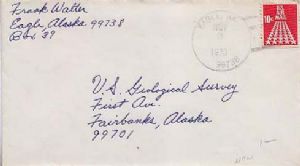 Frank Walter
Eagle, Alaska 99738
Box 39
NOV
99738
10c
U.S. Geological Survey
First Av.
Fairbanks, Alaska
99701